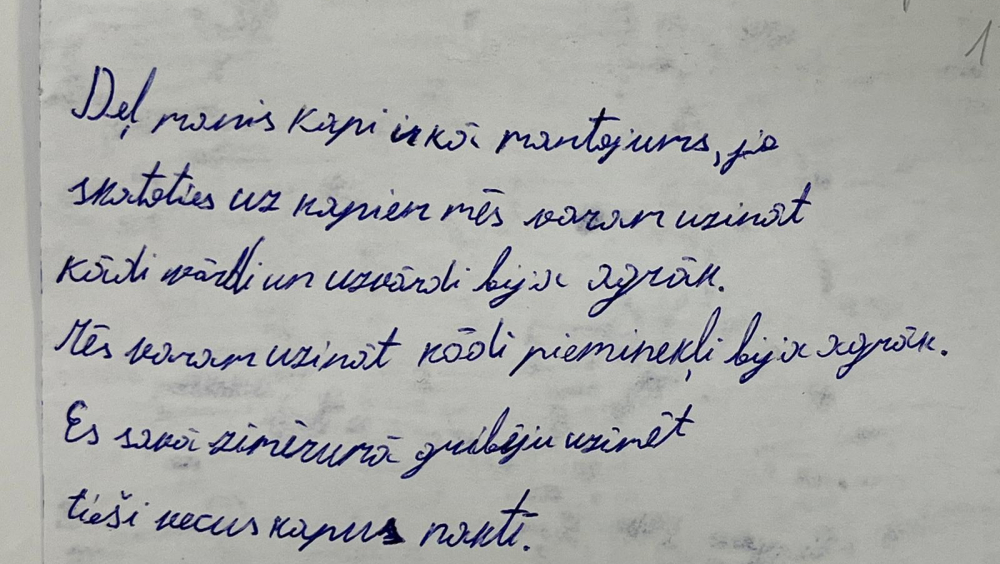 1
Deļ manis kapi ir kā mantojums, jo
skatoties uz kapiem mēs varam uzināt
kādi vārdi un uzvārdi bija agrāk.
Mēs varam uzināt kādi pieminekļi bija agrāk.
Es savā zīmērumā gribēju uzīmēt
tieši vecus kapus naktī.